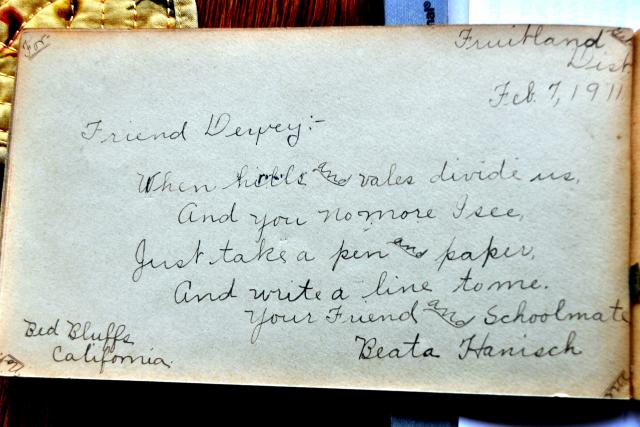 For
Fruitland
Dist.
Feb. 7, 1911
Friend Dewey:-
When hills and vales divide us,
And you no more I see,
Just take a pen and paper,
And write a line to me.
Your Friend and Schoolmate
Beata Hanisch
Red Bluffs
California.